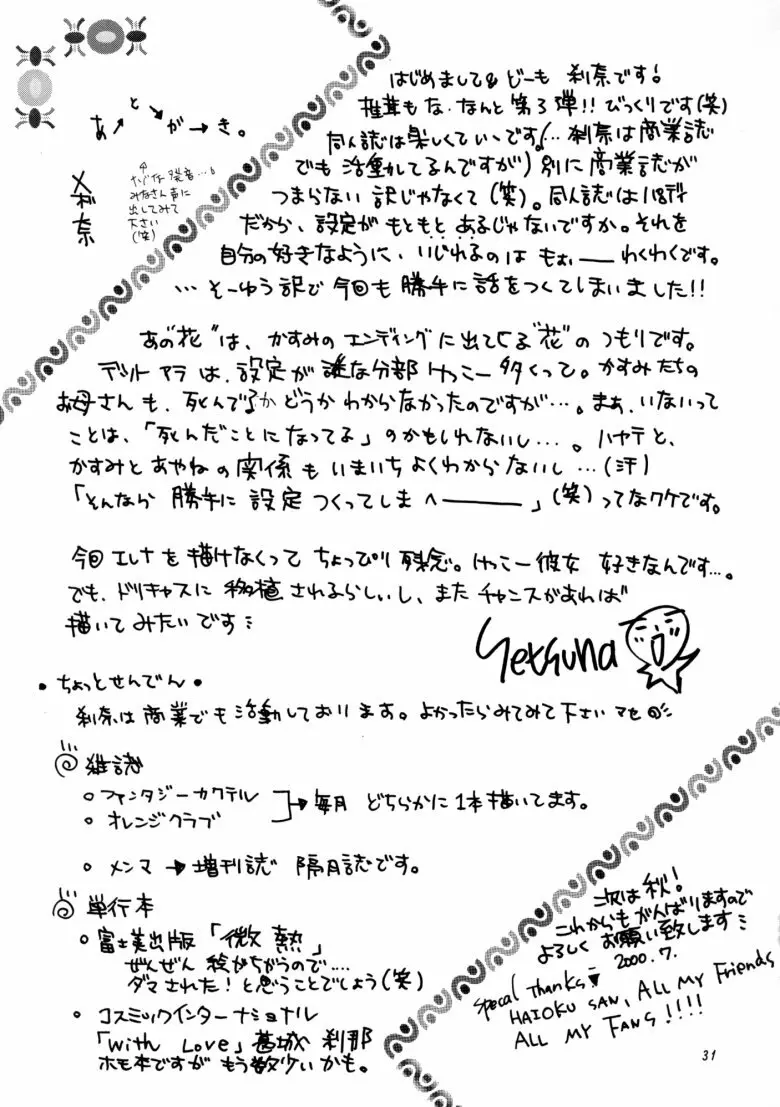 あとがき。
刹奈
みなさん声に
出してみて
下さい
(笑)
はじめまして& どーも 刹奈です!
椎茸もな、なんと第3弾!! びっくりです(笑)
同人誌は楽しくていいです!(… 刹奈は商業誌
でも活動してるんですが)別に商業誌が
つまらない訳じゃなくて(笑)。同人誌はパロディ
だから、設定がもともとあるじゃないですか。それを
自分の好きなように、いじれるのは もぉぃーわくわくです。
… そーゆう訳で今回も勝手に話をつくてしまいました!!
あの“花”は、かすみのエンディングに出てくる“花”のつもりです。
デットアラは、設定が謎な分部けっこー多くって。かすみたちの
お母さんも、死んでるかどうかわからなかったのですが…。まぁ、いないって
ことは、「死んだことになってる」のかもしれないし…。ハヤテと、
かすみとあやねの関係もいまいちよくわからないし…(汗)
「そんなら 勝手に設定 つくってしまへー」(笑)ってなワケです。
今回エレナを描けなくって ちょっぴり残念。けっこー彼女 好きなんです…。
でも、ドリキャスに移植されるらしいし、またチャンスがあれば
描いてみたいです
Setsuna
・ちょっとせんでん・
刹奈は商業でも活動しております。よかったらみてみて下さいマセ
雑誌
○ファンタジーカクテル
○オレンジクラブ
→毎月 どちらかに1本描いてます。
○メンマ → 増刊誌 隔月誌です。
単行本
○富士美出版「微熱」
ぜんぜん 絵がちがうので…
ダマされた!と思うことでしょう(笑)
○コスミックインターナショナル
「with Love」葛城 刹那
ホモ本ですが もう数少いかも。
次は秋!
これからもがんばりますので
よろしくお願い致します
2000.7.
Specal Thanks
HAIOKU SAN, ALL MY Friends
ALL MY FANS!!!!
31